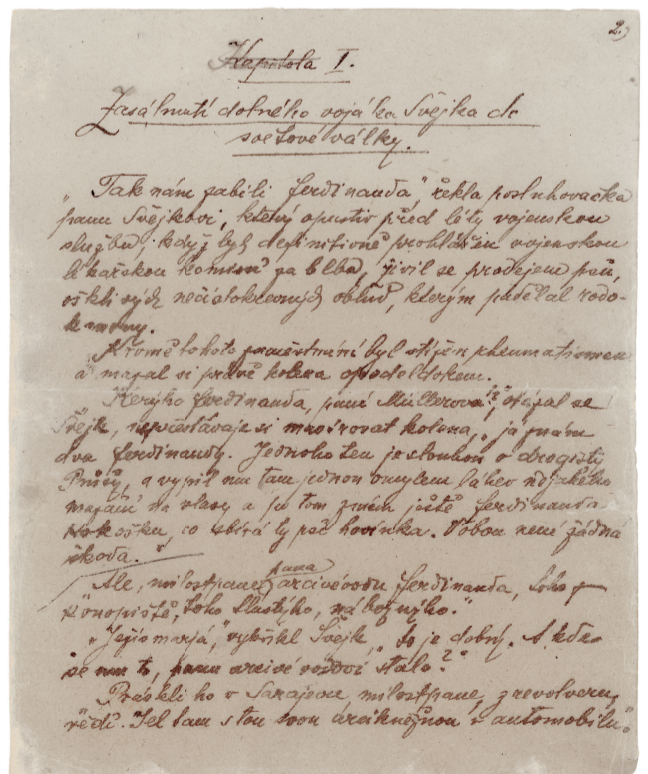 2)
Kapitola I.
Zasáhnutí dobrého vojáka Švejka do
světové války.
„Tak nám zabili Ferdinanda" řekla posluhovačka
panu Švejkovi, který opustiv před léty vojenskou
službu, když byl definitivně prohlášen vojenskou
lékařskou komisí za blba, živil se prodejem psů,
ošklivých nečistokrevných oblud, kterým padělal rodo-
kmeny.
Kromě tohoto zaměstnání byl stižen rheumatismem
a mazal si právě kolena opodeldokem.
Kerýho Ferdinanda, paní Müllerová?", otázal se
Švejk, nepřestávaje si masírovat kolena, „já znám
dva Ferdinandy. Jednoho ten je sloužou o drogisty
Průšy, a vypil mu tam jednou omylem láhev nějakého
mazání na vlasy a pa tom znám ještě Ferdinanda
Kokošku, co sbírá ty psí hovínka. Vobou není žádná
škoda."
Ale, milostpane, pana arcivévodu Ferdinanda, toho z
Konopiště, toho tlustýho, nábožnýho."
„Ježíš marjá," vykřikl Švejk, „to je dobrý. A kde
se mu to, panu arcivévodovi stalo?"
Práskli ho v Sarajevu milostpane, z revolveru,
vědí. Jel tam s tou svou arcikněžnou v automobilu."